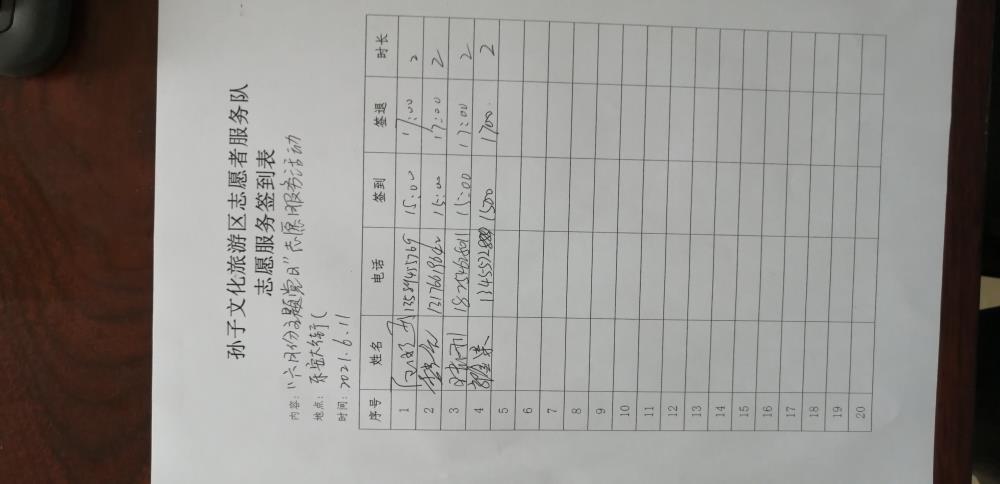 孙子文化旅游区志愿者服务队
志愿服务签到表
内容："六月份主题党日"志愿服务活动
地点：乐安大街
时间：2021.6.11
序号 姓名 电话 签到 签退 时长
1 15:00 17:00 2
2 15:00 17:00 2
3 15:00 17:00 2
4 1500 1700 2
5
6
7
8
9
10
11
12
13
14
15
16
17
18
19
20